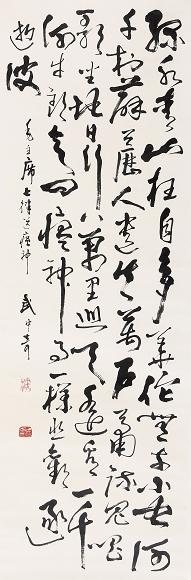 绿水青山枉自多华佗無奈小虫何
千村薜藶人遗矢萬户萧疏鬼唱
歌坐地日行八萬里巡天遥看一千
河牛郎欲问瘟神事一样悲歡逐
逝波
毛主席七律送瘟神 武中奇